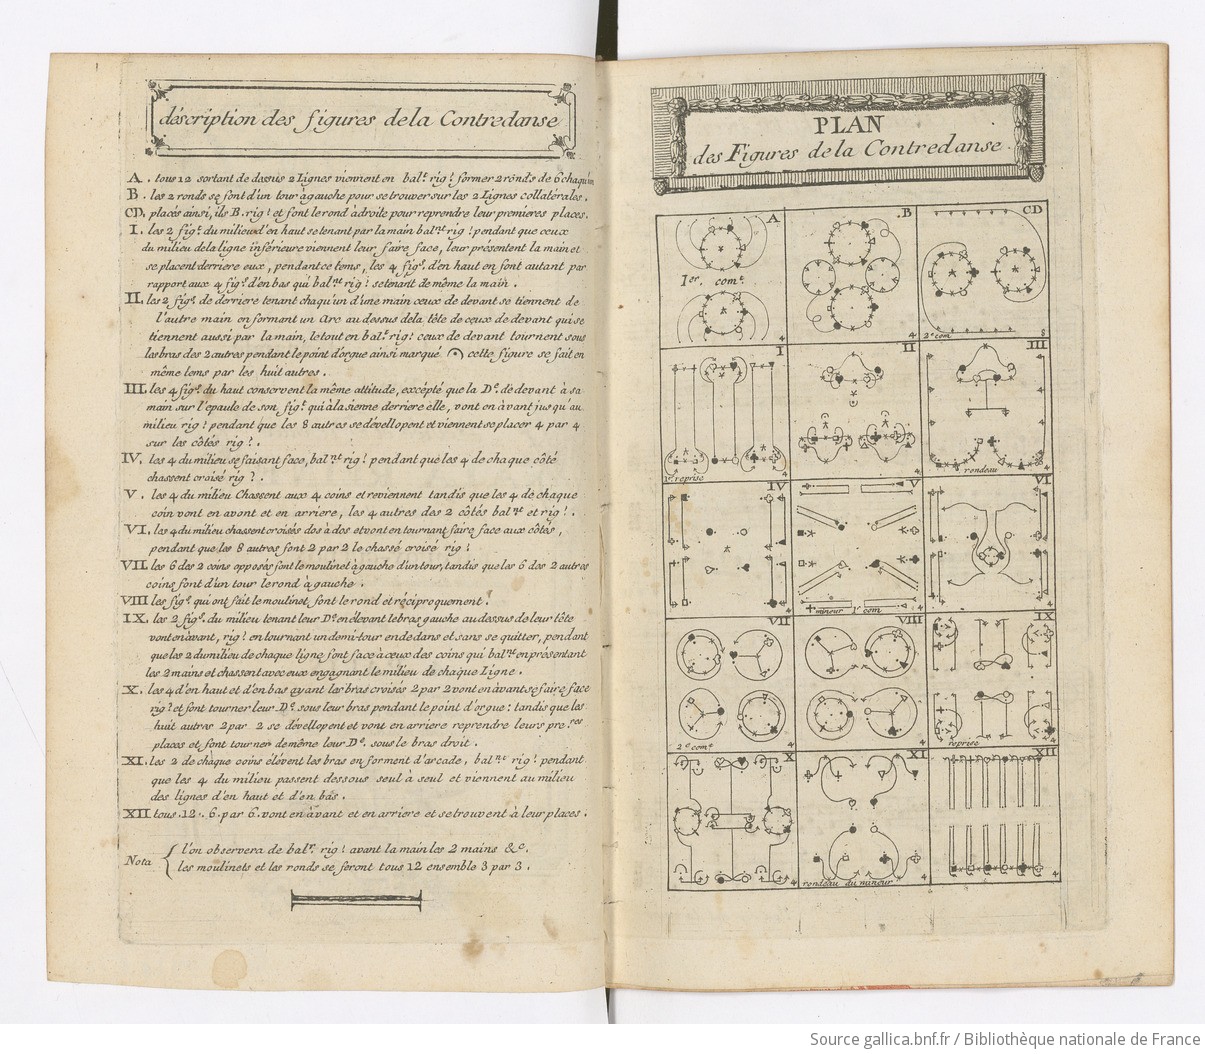 déscription des figures dela Contredanse
A. tous 12 sortant de dessus 2 Lignes viennent en bal.t rig! former 2 ronds de 6 chaqu'un
B. les 2 ronds se font d'un tour à gauche pour se trouver sur les 2 Lignes collatérales.
CD. placés ainsi, ils B. rig! et font le rond à droite pour reprendre leur premieres places.
I. les 2 fig.s du milieu d'en haut se tenant par la main bal.nt rig! pendant que ceux
du milieu de la ligne inférieure viennent leur faire face, leur présentent la main et
se placent derriere eux, pendant ce tems, les 4 fig.s d'en haut en font autant par
rapport aux 4 fig.s d'en bas qui bal.nt rig! se tenant de même la main.
II. les 2 fig.s de derriere tenant chaqu'un d'une main ceux de devant se tiennent de
l'autre main en formant un Arc au dessus de la tête de ceux de devant qui se
tiennent aussi par la main, le tout en bal.t rig! ceux de devant tournent sous
les bras des 2 autres pendant le point d'orgue ainsi marqué 𝄐 cette figure se fait en
même tems par les huit autres.
III. les 4 fig.s du haut conservent la même attitude, excépté que la D.e de devant à sa
main sur l'epaule de son fig.t qui à la sienne derriere elle, vont en àvant jusqu'au
milieu rig! pendant que les 8 autres se dévellopent et viennent se placer 4 par 4
sur les côtés rig!.
IV. les 4 du milieu se faisant face, bal.nt rig! pendant que les 4 de chaque côté
chassent croisé rig!.
V. les 4 du milieu Chassent aux 4 coins et reviennent tandis que les 4 de chaque
coin vont en avant et en arriere, les 4 autres des 2 côtés bal.nt et rig!.
VI. las 4 du milieu chassent croisés dos à dos et vont en tournant faire face aux côtés,
pendant que les 8 autres font 2 par 2 le chassé croisé rig!
VII. les 6 des 2 coins opposés font le moulinet à gauche d'un tour, tandis que les 6 des 2 autres
coins font d'un tour le rond à gauche.
VIII les fig.s qui ont fait le moulinet font le rond et réciproquement.
IX. les 2 fig.s du milieu tenant leur D.e en élevant le bras gauche au dessus de leur tête
vont en àvant, rig! en tournant un demi-tour en dedans et sans se quitter, pendant
que les 2 du milieu de chaque ligne font face à ceux des coins qui bal.nt en présentant
les 2 mains et chassent avec eux en gagnant le milieu de chaque Ligne.
X. les 4 d'en haut et d'en bas ayant les bras croisés 2 par 2 vont en àvant se faire face
rig! et font tourner leur D.e sous leur bras pendant le point d'orgue: tandis que les
huit autres 2 par 2 se dévellopent et vont en arriere reprendre leurs pre.res
places et font tourner de même leur D.e sous le bras droit.
XI. les 2 de châque coins elévent les bras en forment d'arcade, bal.nt rig! pendant
que les 4 du milieu passent dessous seul à seul et viennent au milieu
des lignes d'en haut et d'en bas.
XII tous 12. 6 par 6 vont en àvant et en arriere et se trouvent à leur places.
Nota { l'on observera de bal.r rig! avant la main les 2 mains &c.
les moulinets et les ronds se feront tous 12 ensemble 3 par 3.
PLAN
des Figures de la Contredanse.
A B CD
1er. com.t
4 4 2e com 8
I II III
1e. reprise 4 4 rondeau 4
IV V VI
4 mineur 1r com 4 4
VII VIII IX
2e com.t 4 4 reprise 4
X XI XII
4 rondeau du mineur 4 4
Source gallica.bnf.fr / Bibliothèque nationale de France